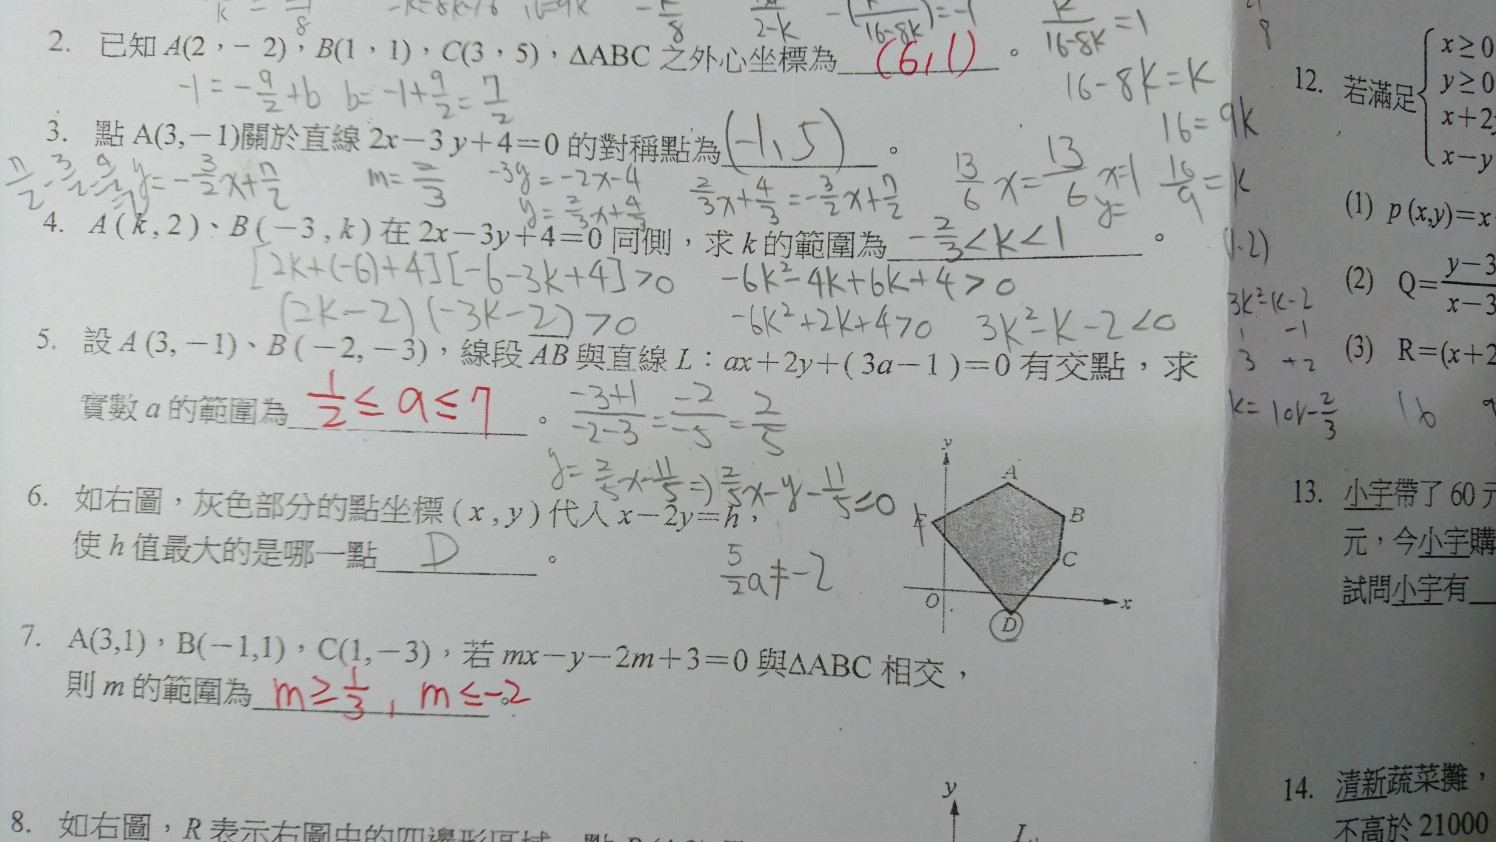 -k=8k-16 16=9k
2. 已知 A(2,-2), B(1,1), C(3,5), ΔABC 之外心坐標為 (6,1) 。
16-8k=1
-1=-9/2+b b=-1+9/2=7/2 16-8k=k
3. 點 A(3,-1)關於直線 2x-3y+4=0 的對稱點為 (-1,5) 。 16=9k
y=-3/2x+7/2 m=2/3 -3y=-2x-4 2/3x+4/3=-3/2x+7/2 13/6x=13/6 x=1 16/9=k
y=2/3x+4/3 y=
4. A(k,2)、B(-3,k) 在 2x-3y+4=0 同側,求 k 的範圍為 -2/3<k<1 。
[2k+(-6)+4][-6-3k+4]>0 -6k²-4k+6k+4>0
(2k-2)(-3k-2)>0 -6k²+2k+4>0 3k²-k-2<0
5. 設 A(3,-1)、B(-2,-3),線段 AB 與直線 L:ax+2y+(3a-1)=0 有交點,求
實數 a 的範圍為 1/2≤a≤7 。 -3+1/-2-3=-2/-5=2/5
y=2/5x-11/5 => 2/5x-y-11/5≤0
6. 如右圖,灰色部分的點坐標 (x,y) 代入 x-2y=h,
使 h 值最大的是哪一點 D 。
5/2a≠-2
y A B C D E O x
7. A(3,1),B(-1,1),C(1,-3),若 mx-y-2m+3=0 與ΔABC 相交,
則 m 的範圍為 m≥1/3, m≤-2 。
8. 如右圖,R 表示右圖中的四邊形區域
y
12. 若滿足
x≥0
y≥0
x+2
x-y
(1) p(x,y)=x
(2) Q=y-3/x-3
(3) R=(x+2
3k²-k-2
1 -1
3 +2
k=1or-2/3 16
13. 小宇帶了 60 元
元,今小宇購
試問小宇有
14. 清新蔬菜攤,
不高於 21000